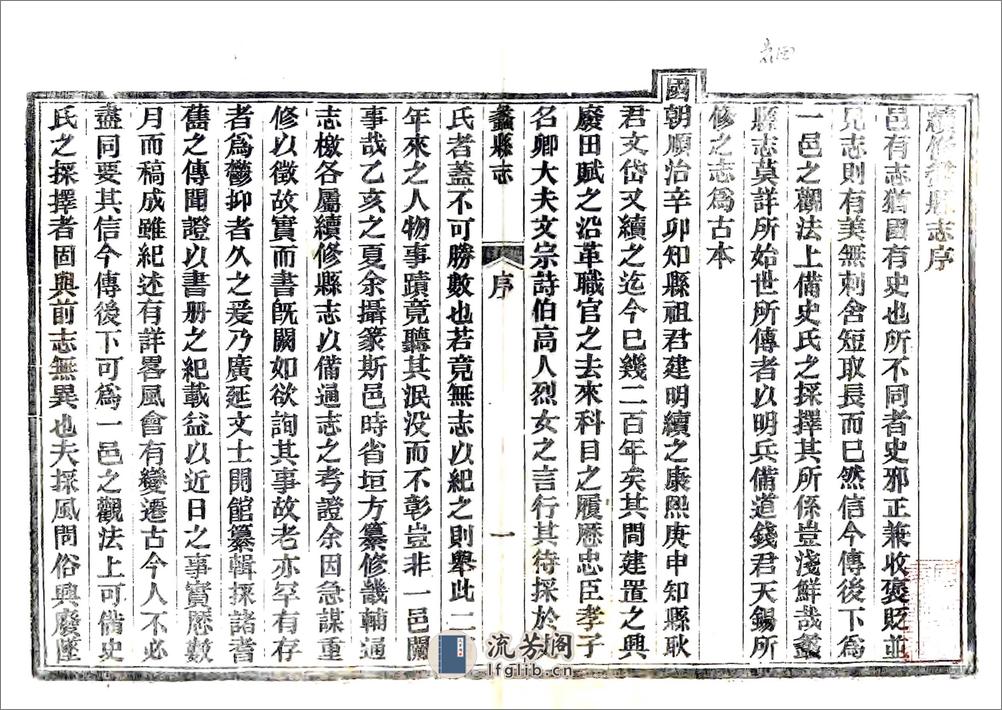 續修蠡縣志序
邑有志猶國有史也所不同者史邪正兼收褒貶並
見志則有美無刺舍短取長而已然信今傳後下爲
一邑之觀法上備史氏之採擇其所係豈淺鮮哉蠡
縣志莫詳所始世所傳者以明兵備道錢君天錫所
修之志爲古本
國朝順治辛卯知縣祖君建明續之康熙庚申知縣耿
君文岱又續之迄今已幾二百年矣其間建置之興
廢田賦之沿革職官之去來科目之履歷忠臣孝子
名卿大夫文宗詩伯高人烈女之言行其待採於
蠡縣志 序 一
氏者蓋不可勝數也若竟無志以紀之則舉此二
年來之人物事蹟竟聽其泯没而不彰豈非一邑闕
事哉乙亥之夏余攝篆斯邑時省垣方纂修畿輔通
志檄各屬續修縣志以備通志之考證余因急謀重
修以徵故實而書旣闕如欲詢其事故老亦罕有存
者爲鬱抑者久之爰乃廣延文士開館纂輯採諸耆
舊之傳聞證以書册之紀載益以近日之事實歷數
月而稿成雖紀述有詳畧風會有變遷古今人不必
盡同要其信今傳後下可爲一邑之觀法上可備史
氏之採擇者固與前志無異也夫採風問俗興廢墜
流芳阁
lfglib.cn